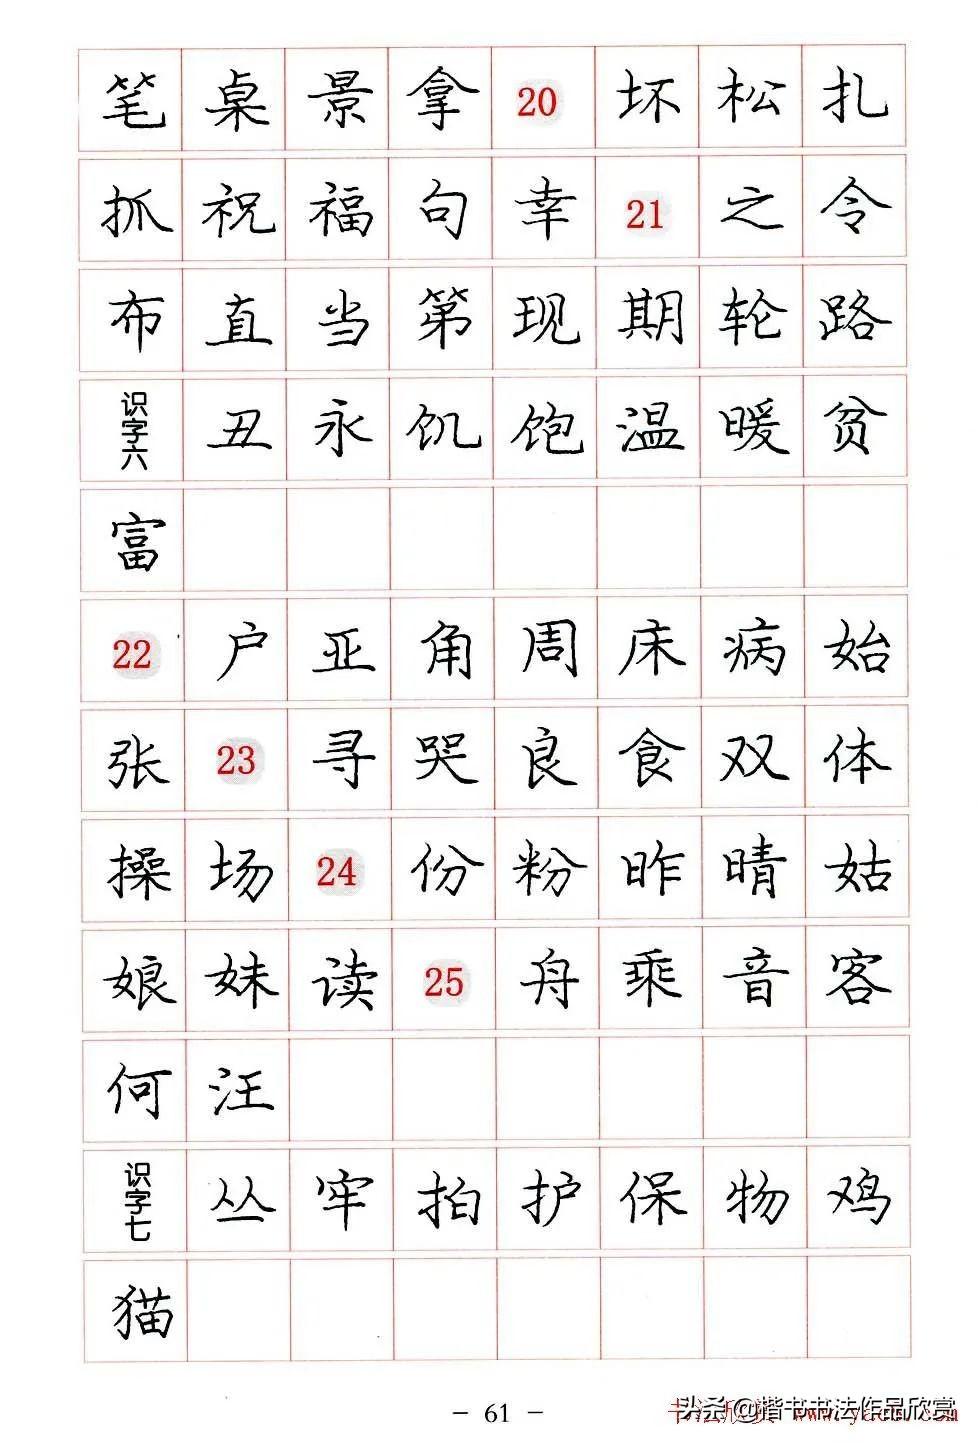 笔 桌 景 拿 20 坏 松 扎
抓 祝 福 句 幸 21 之 令
布 直 当 第 现 期 轮 路
识字六 丑 永 饥 饱 温 暖 贫
富
22 户 亚 角 周 床 病 始
张 23 寻 哭 良 食 双 体
操 场 24 份 粉 昨 晴 姑
娘 妹 读 25 舟 乘 音 客
何 汪
识字七 丛 牢 拍 护 保 物 鸡
猫
- 61 -
头条@楷书书法作品欣赏